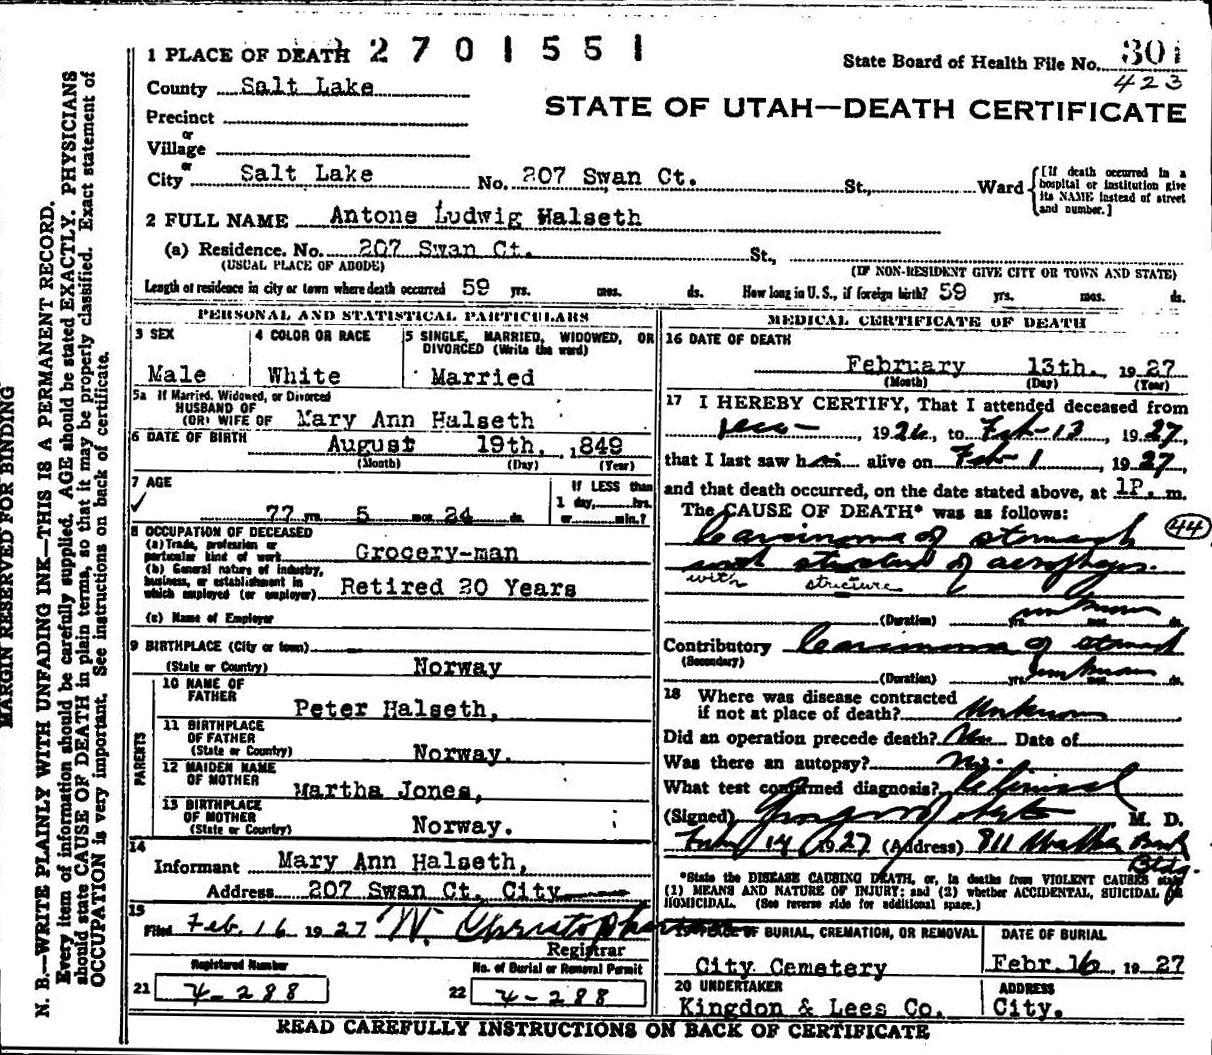 1 PLACE OF DEATH 2 7 0 1 5 5 1
State Board of Health File No. 301
423
County Salt Lake
STATE OF UTAH—DEATH CERTIFICATE
Precinct
or
Village
or
City Salt Lake No. 207 Swan Ct. St., Ward
[If death occurred in a hospital or institution give its NAME instead of street and number.]
2 FULL NAME Antone Ludwig Halseth
(a) Residence. No. 207 Swan Ct. St.,
(USUAL PLACE OF ABODE) (IF NON-RESIDENT GIVE CITY OR TOWN AND STATE)
Length of residence in city or town where death occurred 59 yrs. mos. ds. How long in U.S., if foreign birth? 59 yrs. mos. ds.
PERSONAL AND STATISTICAL PARTICULARS
3 SEX 4 COLOR OR RACE 5 SINGLE, MARRIED, WIDOWED, OR
DIVORCED (Write the word)
Male White Married
5a If Married, Widowed, or Divorced
HUSBAND OF
(OR) WIFE OF Mary Ann Halseth
6 DATE OF BIRTH August 19th, 1849
(Month) (Day) (Year)
7 AGE If LESS than
1 day, hrs.
77 yrs. 5 mos. 24 ds. or min.?
8 OCCUPATION OF DECEASED
(a) Trade, profession or
particular kind of work Grocery-man
(b) General nature of industry,
business, or establishment in
which employed (or employer) Retired 20 Years
(c) Name of Employer
9 BIRTHPLACE (City or town)
(State or Country) Norway
PARENTS
10 NAME OF
FATHER Peter Halseth,
11 BIRTHPLACE
OF FATHER
(State or Country) Norway.
12 MAIDEN NAME
OF MOTHER Martha Jones,
13 BIRTHPLACE
OF MOTHER
(State or Country) Norway.
14
Informant Mary Ann Halseth,
Address 207 Swan Ct. City
15
Filed Feb. 16 1927 W. Christopherson
Registrar
Registered Number No. of Burial or Removal Permit
21 4-288 22 4-288
MEDICAL CERTIFICATE OF DEATH
16 DATE OF DEATH
February 13th. 1927
(Month) (Day) (Year)
17 I HEREBY CERTIFY, That I attended deceased from
1926, to Feb-13, 1927,
that I last saw him alive on Feb-1, 1927,
and that death occurred, on the date stated above, at 1P. m.
The CAUSE OF DEATH* was as follows:
44
Carcinoma of stomach
with stricture of aesophagus.
with stricture
(Duration) unknown yrs. mos. ds.
Contributory Carcinoma of stomach
(Secondary)
(Duration) unknown yrs. mos. ds.
18 Where was disease contracted
if not at place of death? Unknown
Did an operation precede death? No Date of
Was there an autopsy? No.
What test confirmed diagnosis? Clinical
(Signed) M. D.
Feby 14 1927 (Address) 811 Walker Bank
Bldg.
*State the DISEASE CAUSING DEATH, or, in deaths from VIOLENT CAUSES state
(1) MEANS AND NATURE OF INJURY; and (2) whether ACCIDENTAL, SUICIDAL or
HOMICIDAL. (See reverse side for additional space.)
19 PLACE OF BURIAL, CREMATION, OR REMOVAL DATE OF BURIAL
City Cemetery Febr. 16, 1927
20 UNDERTAKER ADDRESS
Kingdon & Lees Co. City.
READ CAREFULLY INSTRUCTIONS ON BACK OF CERTIFICATE
MARGIN RESERVED FOR BINDING
N. B.—WRITE PLAINLY WITH UNFADING INK—THIS IS A PERMANENT RECORD.
Every item of information should be carefully supplied. AGE should be stated EXACTLY. PHYSICIANS
should state CAUSE OF DEATH in plain terms, so that it may be properly classified. Exact statement of
OCCUPATION is very important. See instructions on back of certificate.